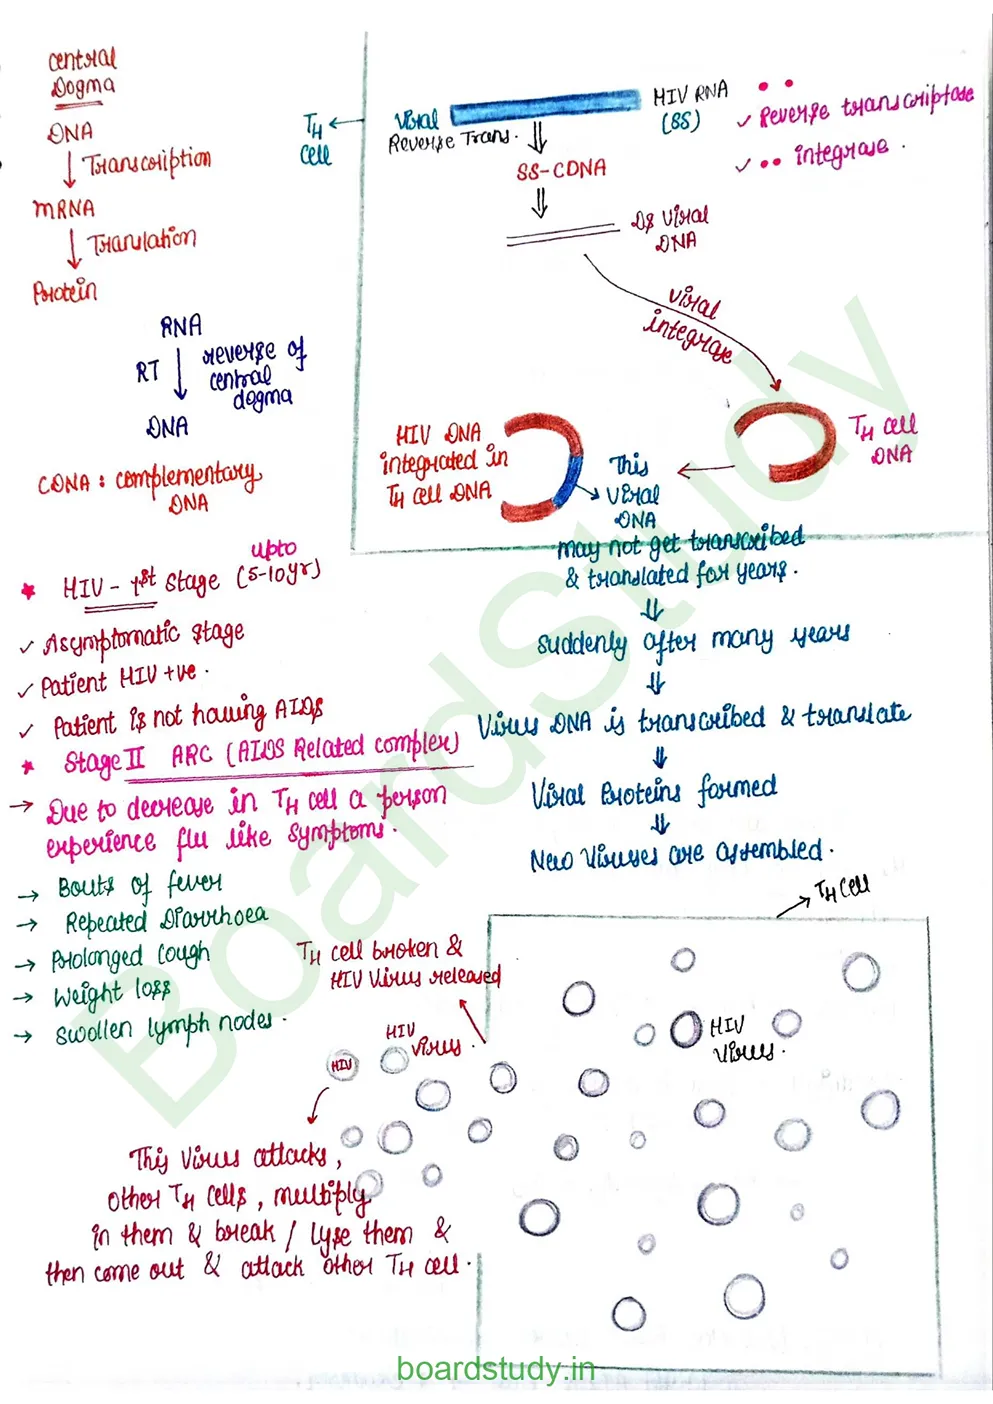 Central
Dogma
DNA
Transcription
mRNA
Translation
Protein
RNA
RT
reverse of
central
dogma
DNA
CDNA : Complementary
DNA
TH
cell
Viral
HIV RNA
(SS)
Reverse Trans.
✓ Reverse transcriptase
✓ •• integrase .
SS-CDNA
DS Viral
DNA
Viral
integrase
HIV DNA
integrated in
TH cell DNA
TH cell
DNA
This
Viral
DNA
may not get transcribed
& translated for years.
Suddenly after many years
Virus DNA is transcribed & translate
Viral Proteins formed
New Viruses are assembled.
upto
★ HIV - 1st Stage (5-10yr)
✓ Asymptomatic Stage
✓ Patient HIV +ve .
✓ Patient is not having AIDS
★ Stage II ARC (AIDS Related Complex)
→ Due to decrease in TH cell a person
experience flu like Symptoms.
→ Bouts of fever
→ Repeated Diarrhoea
→ Prolonged Cough
→ Weight loss
→ Swollen lymph nodes.
TH cell
TH cell broken &
HIV Virus released
HIV
Virus.
HIV
HIV
Virus.
This Virus attacks,
other TH cells, multiply
in them & break / lyse them &
then come out & attack other TH cell.
BoardStudy
boardstudy.in